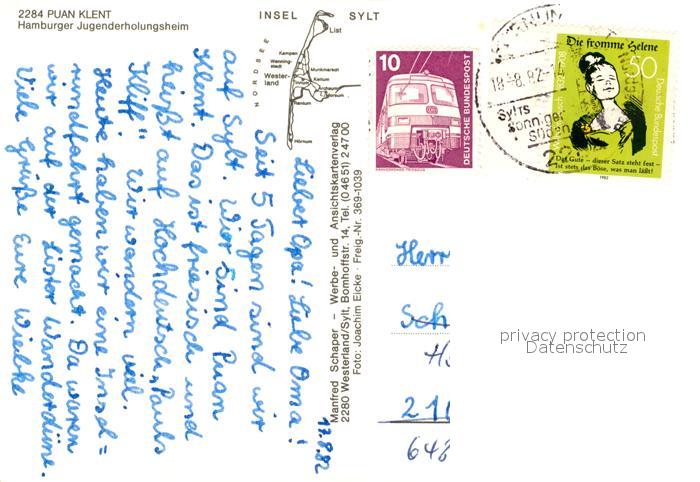 2284 PUAN KLENT
Hamburger Jugenderholungsheim
INSEL SYLT
NORDSEE
List
Kampen
Wenning-
stedt
Wester-
land
Munkmarsch
Keitum
Archsum
Morsum
Rantum
Hörnum
17.8.82
Lieber Opa! Liebe Oma!
Seit 5 Tagen sind wir
auf Sylt. Wir sind Puan
Klent. Das ist friesisch und
heißt auf Hochdeutsch „Pauls
Kliff". Wir wandern viel.
Heute haben wir eine Insel=
rundfahrt gemacht. Da waren
wir auf der Lister Wanderdüne.
Viele Grüße Eure Wiebke
Manfred Schaper – Werbe- und Ansichtskartenverlag
2280 Westerland/Sylt, Bomhoffstr. 14, Tel. (0 46 51) 2 47 00
Foto: Joachim Eicke · Freig.-Nr. 369-1039
10
DEUTSCHE BUNDESPOST
Die fromme Helene
50
Deutsche Bundespost
Das Gute – dieser Satz steht fest –
Ist stets das Böse, was man läßt!
1982
18.-8.82
Sylts
sonniger
Süden
Herr
Sch
211
648
privacy protection
Datenschutz